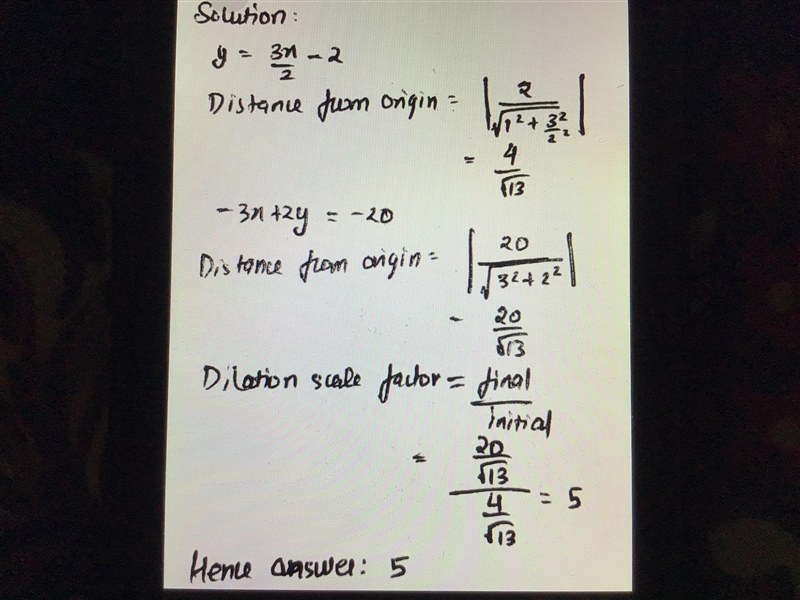 Solution:
y = 3x/2 - 2
Distance from origin = |2/√(1² + 3²/2²)|
= 4/√13
-3x+2y = -20
Distance from origin = |20/√(3²+2²)|
- 20/√13
Dilation scale factor = final/initial
= (20/√13)/(4/√13) = 5
Hence answer: 5